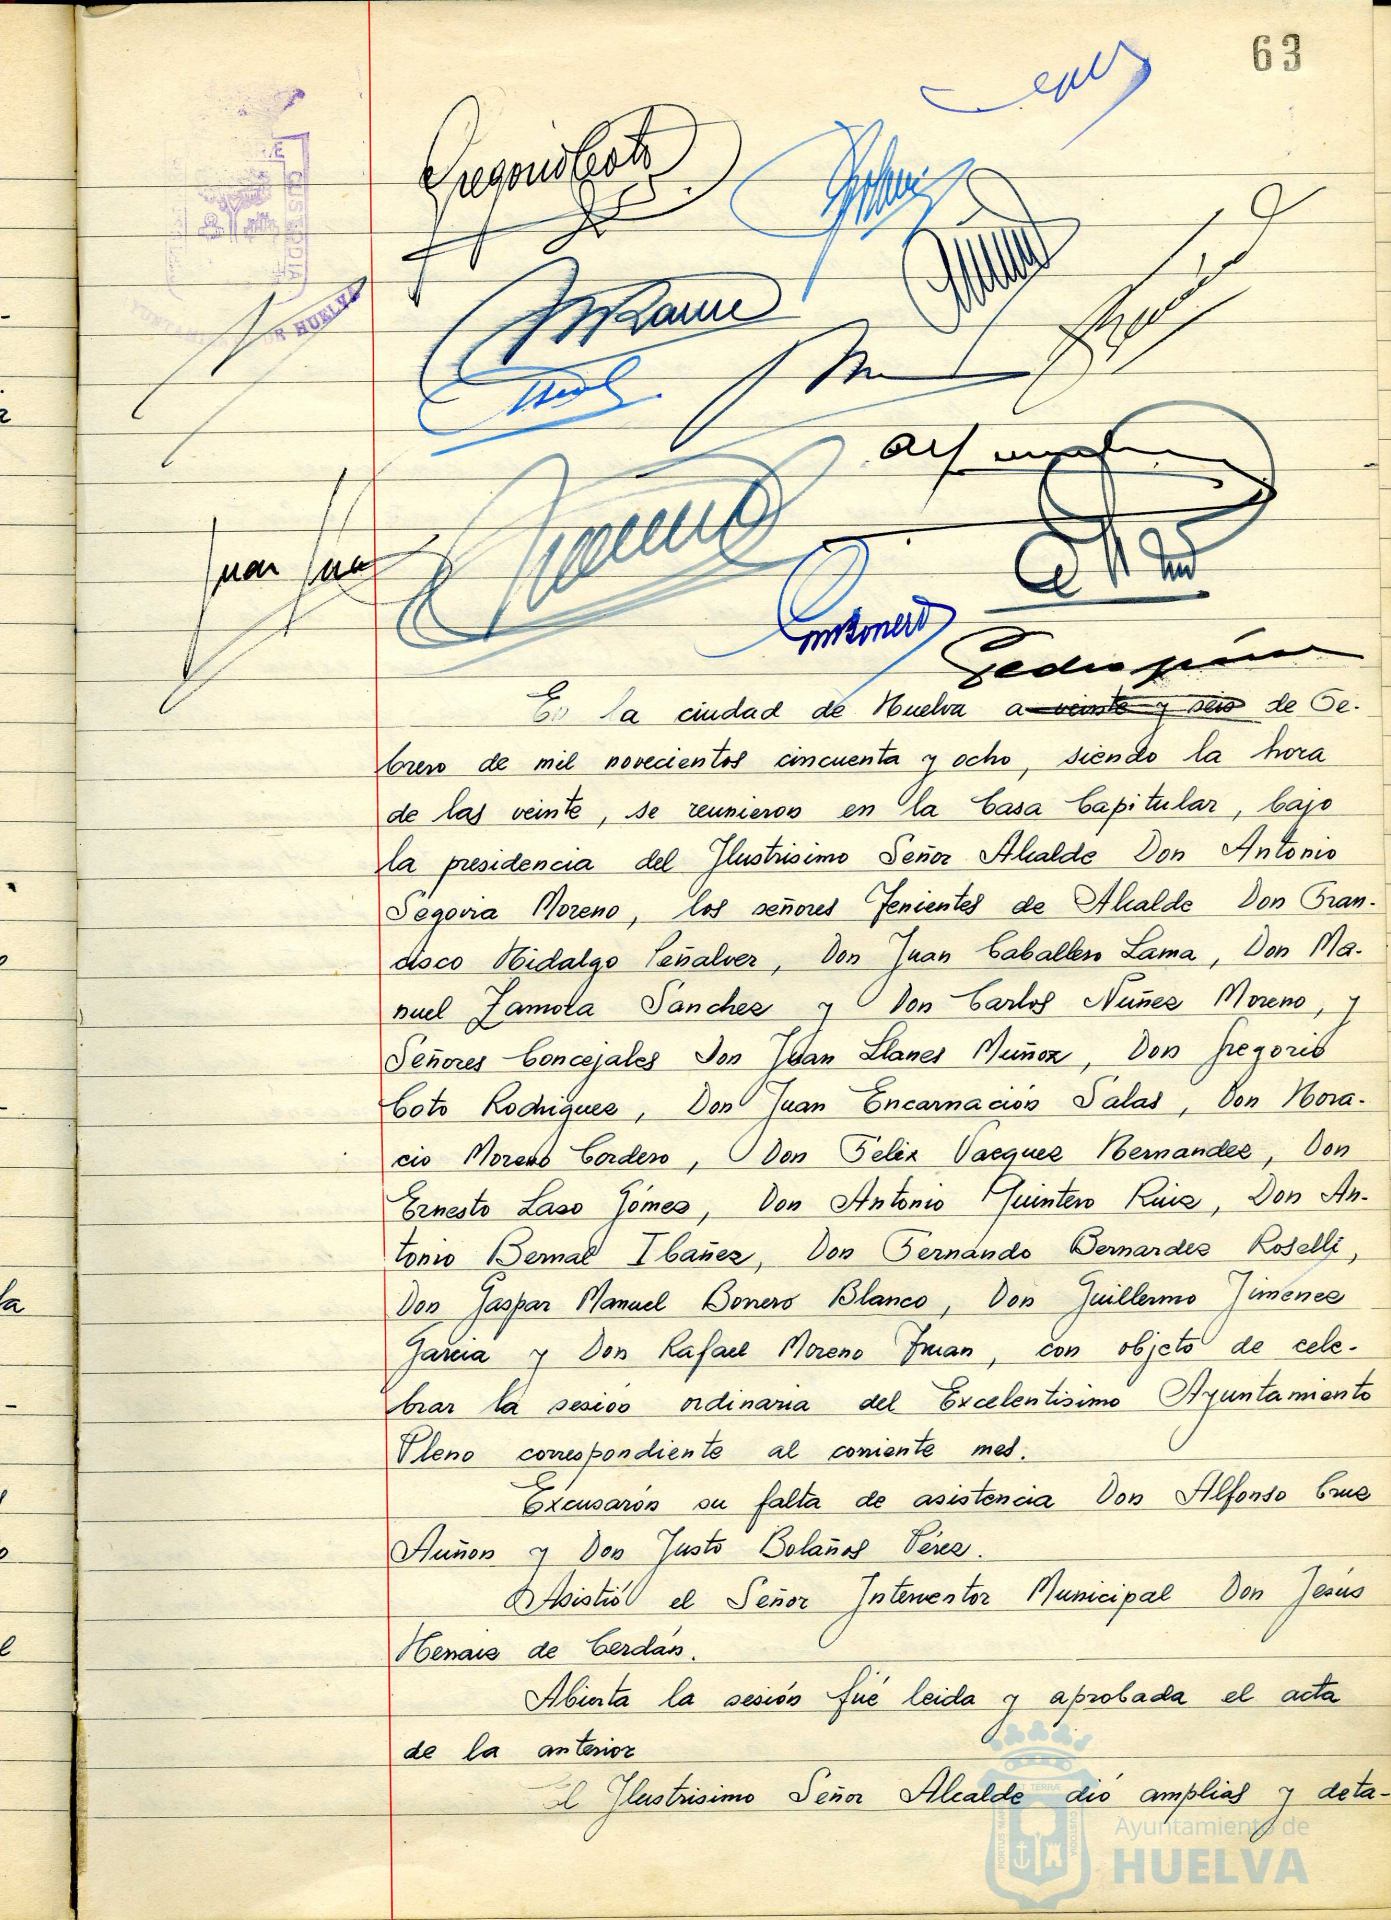 63
Gregorio Coto
Juan
En la ciudad de Huelva a veinte y seis de Fe-
brero de mil novecientos cincuenta y ocho, siendo la hora
de las veinte, se reunieron en la Casa Capitular, bajo
la presidencia del Ilustrisimo Señor Alcalde Don Antonio
Segovia Moreno, los señores Tenientes de Alcalde Don Fran-
cisco Hidalgo Peñalver, Don Juan Caballero Lama, Don Ma-
nuel Zamora Sanchez y Don Carlos Nuñez Moreno, y
Señores Concejales Don Juan Llanes Muñoz, Don Gregorio
Coto Rodriguez, Don Juan Encarnación Salas, Don Hora-
cio Moreno Cordero, Don Felix Vazquez Hernandez, Don
Ernesto Laso Gómez, Don Antonio Quintero Ruiz, Don An-
tonio Bernal Ibañez, Don Fernando Bernardez Roselli,
Don Gaspar Manuel Borrero Blanco, Don Guillermo Jimenez
Garcia y Don Rafael Moreno, con objeto de cele-
brar la sesión ordinaria del Excelentisimo Ayuntamiento
Pleno correspondiente al corriente mes.
Excusarón su falta de asistencia Don Alfonso Cruz
Auñon y Don Justo Bolaños Pérez.
Asistió el Señor Interventor Municipal Don Jesús
de Cerdán.
Abierta la sesión fué leida y aprobada el acta
de la anterior
El Ilustrisimo Señor Alcalde dió amplias y deta-
Ayuntamiento de
HUELVA